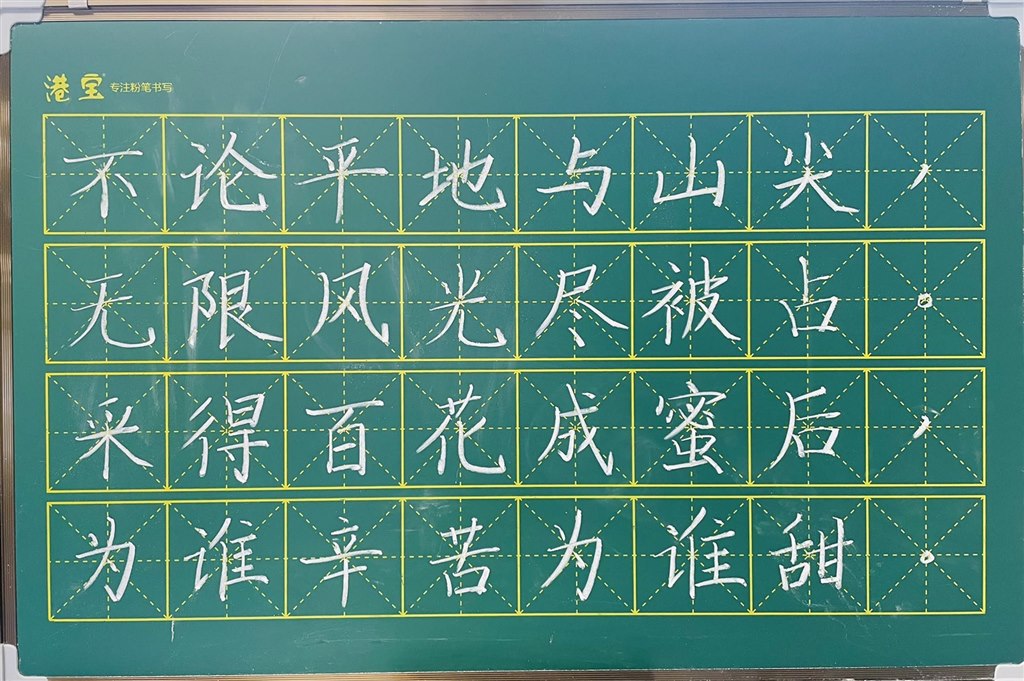 港宝 专注粉笔书写
不论平地与山尖，
无限风光尽被占。
采得百花成蜜后，
为谁辛苦为谁甜。